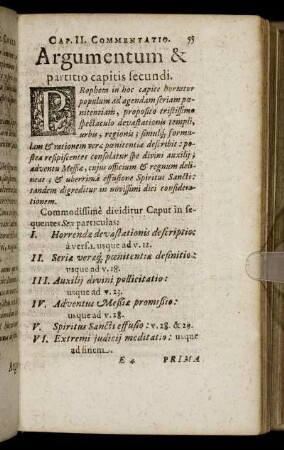 CAP. II. COMMENTATIO. 55
Argumentum &
partitio capitis secundi.
PRopheta in hoc capite hortatur
populum ad agendam seriam pœ-
nitentiam, proposito tristissimo
spectaculo devastationis templi,
urbis, regionis; simulq́; formu-
lam & rationem veræ pœnitentiæ describit: po-
stea respiscentes consolatur spe divini auxilij; &
adventu Messiæ, cujus officium & regnum deli-
neat; & uberrimâ effusione Spiritus Sancti:
tandem digreditur in novissimi diei considera-
tionem.
Commodissimè dividitur Caput in se-
quentes Sex particulas:
I. Horrendæ devastationis descriptio:
à vers. 1. usque ad v. 12.
II. Seriæ veræq́; pœnitentiæ definitio:
usque ad v. 18.
III. Auxilij divini pollicitatio:
usque ad v. 23.
IV. Adventus Messiæ promissio:
usque ad v. 28.
V. Spiritus Sancti effusio: v. 28. & 29.
VI. Extremi judicij meditatio: usque
ad finem.
E 4 PRIMA